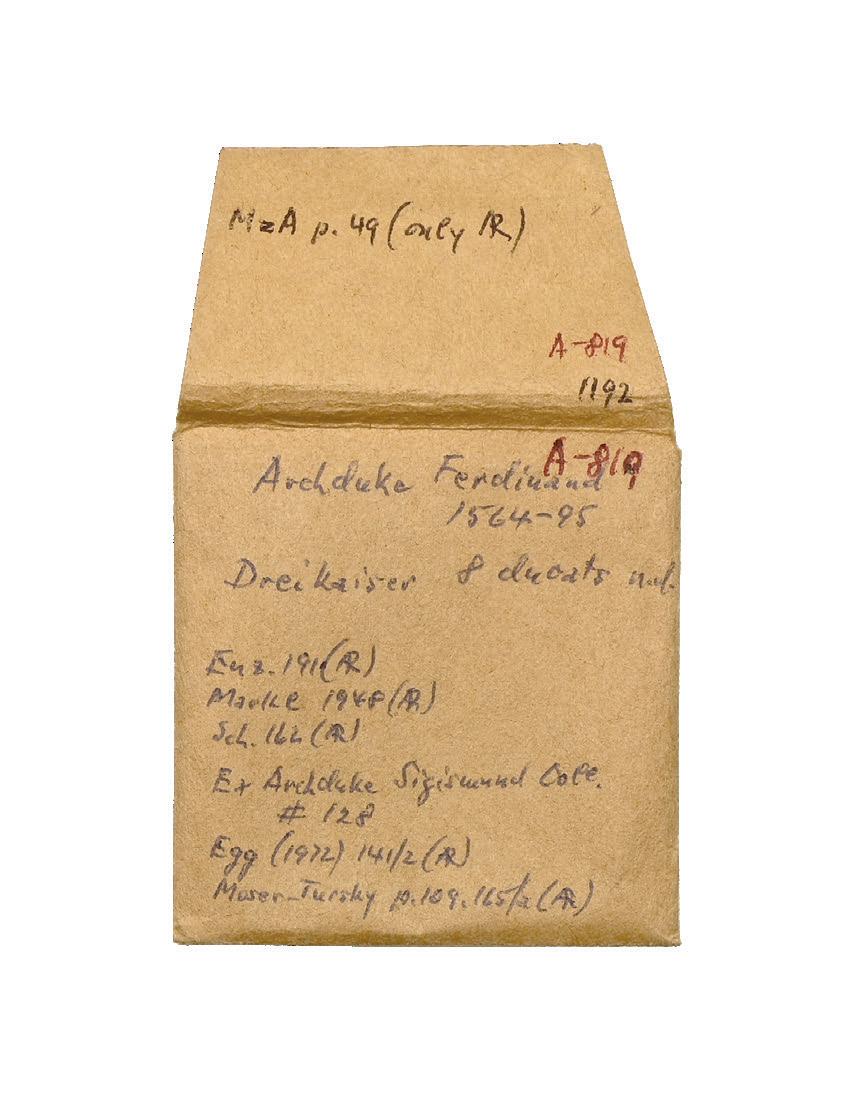 MzA p. 49 (only AR)
A-819
1192
A-819
Archduke Ferdinand
1564-95
Dreikaiser 8 ducats
Enz. 191 (AR)
Markl 1948 (AR)
Sch. 162 (AR)
Ex Archduke Sigismund Coll.
# 128
Egg (1972) 141/2 (AR)
Moser-Tursky p. 109. 165/a (AR)